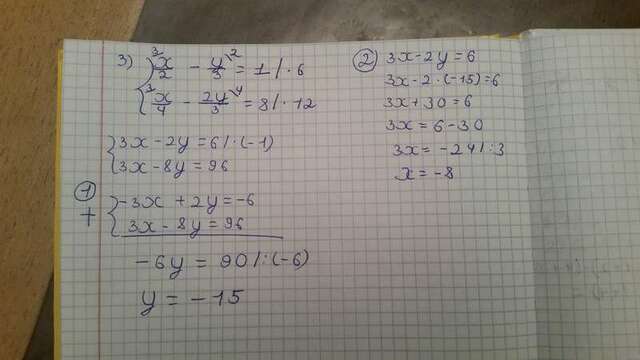 3) { x/2 \3 - y/3 \2 = 1 | · 6
{ x/4 \3 - 2y/3 \4 = 8 | · 12
{ 3x - 2y = 6 | · (-1)
{ 3x - 8y = 96
① + { -3x + 2y = -6
{ 3x - 8y = 96
-6y = 90 | : (-6)
y = -15
② 3x - 2y = 6
3x - 2 · (-15) = 6
3x + 30 = 6
3x = 6 - 30
3x = -24 | : 3
x = -8